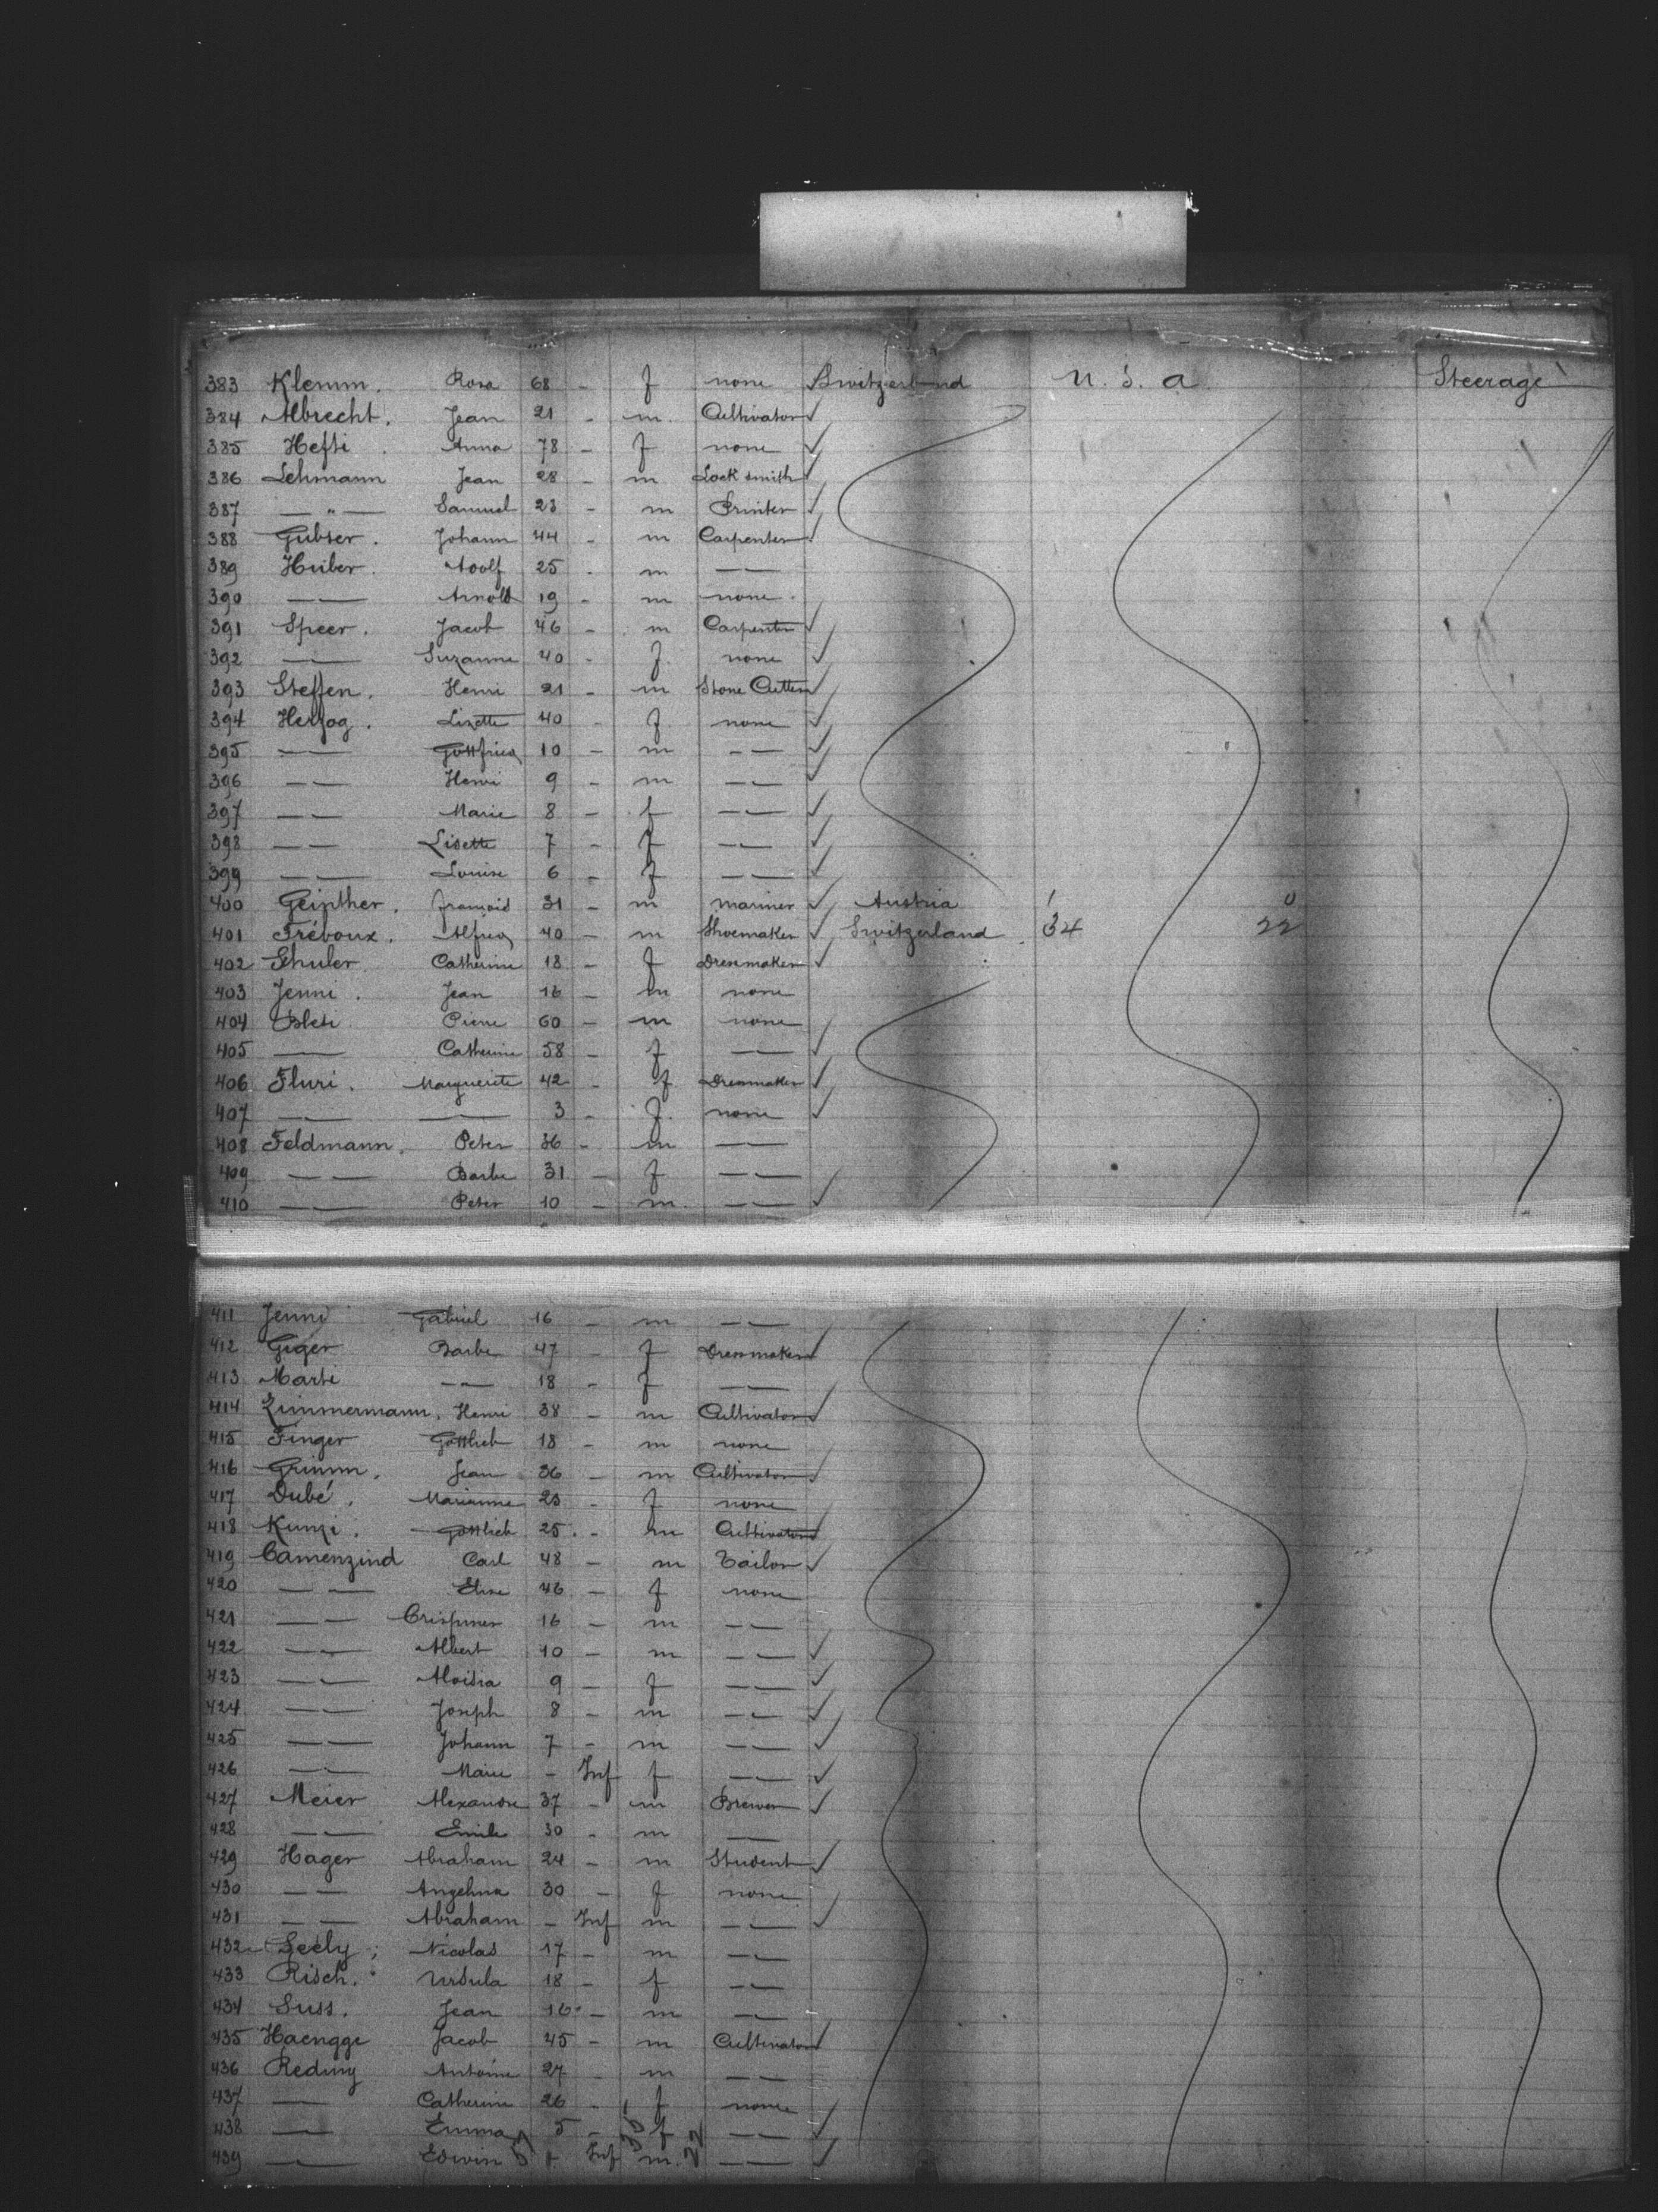 383 Klemm. Rosa 68 - f none Switzerland U. S. A Steerage
384 Albrecht. Jean 21 - m. Cultivator ✓
385 Hefti . Anna 78 - f none ✓
386 Lehmann Jean 28 - m Lock smith ✓
387 — " — Samuel 23 - m Printer ✓
388 Gubser . Johann 44 - m Carpenter ✓
389 Huber . Adolf 25 - m — —
390 — — Arnold 19 - m none .
391 Speer . Jacob 46 - m Carpenter ✓
392 — — Suzanne 40 - f. none ✓
393 Steffen . Henri 21 - m Stone Cutter ✓
394 Herzog . Lizette 40 - f none ✓
395 — — Gottfried 10 - m — — ✓
396 — — Henri 9 - m — — ✓
397 — — Marie 8 - f — — ✓
398 — — Lisette 7 - f — — ✓
399 — — Louise 6 - f — — ✓
400 François 31 - m mariner ✓ Austria
401 Frévoux . Alfred 40 - m Shoemaker ✓ Switzerland 34 22
402 Shuler Catherine 18 - f Dressmaker ✓
403 Jenni . Jean 16 - m none
404 Pierre 60 - m none
405 — — Catherine 58 - f — — ✓
406 Fluri . Marguerite 42 - f Dressmaker ✓
407 — — — — 3 - f. none ✓
408 Feldmann . Peter 36 - m — —
409 — — Barbe 31 - f — —
410 — — Peter 10 - m. — — ✓
411 Jenni Gabriel 16 - m — —
412 Giger Barbe 47 - f Dressmaker ✓
413 Marti — — 18 - f — —
414 Zimmermann . Henri 38 - m Cultivator ✓
415 Finger Gottlieb 18 - m none
416 Grimm . Jean 36 - m Cultivator ✓
417 Dubé . Marianne 23 - f none
418 Kunzi . Gottlieb 25 . - m Cultivator
419 Camenzind Carl 48 - m Tailor ✓
420 — — Elise 46 - f none
421 — — 16 - m — —
422 — — Albert 10 - m — — ✓
423 — — Aloisia 9 - f — — ✓
424 — — Joseph 8 - m — — ✓
425 — — Johann 7 - m — — ✓
426 — — Marie - Inf f — — ✓
427 Meier Alexandre 37 - m Brewer ✓
428 — — Emile 30 - m — —
429 Hager Abraham 24 - m Student ✓
430 — — Angelina 30 - f none
431 — — Abraham - Inf m — — ✓
432 Seely ; Nicolas 17 - m — —
433 Risch . Ursula 18 - f — —
434 Suss . Jean 16 - m — —
435 Haengge Jacob 45 - m Cultivator ✓
436 Reding Antoine 27 - m — —
437 — — Catherine 26 - f none
438 — — Emma 5 - f — — ✓
439 — — Edwin Inf m. 22 — — ✓